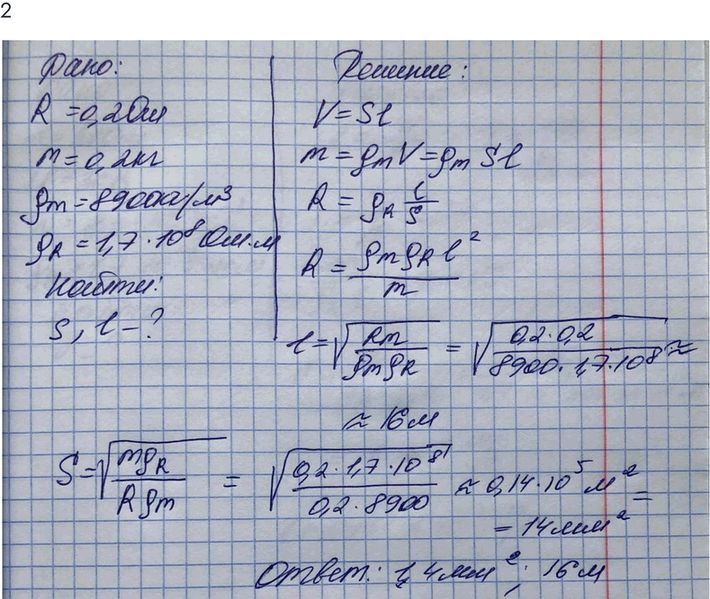 2
Дано:
R = 0,2 Ом
m = 0,2 кг
ρm = 8900 кг/м³
ρR = 1,7 · 10⁸ Ом · м
Найти:
S, l - ?
Решение:
V = Sl
m = ρm V = ρm Sl
R = ρR l/S
R = ρm ρR l²/m
l = √(Rm/ρm ρR) = √(0,2 · 0,2/8900 · 1,7 · 10⁸) ≈
≈ 16 м
S = √(mρR/Rρm) = √(0,2 · 1,7 · 10⁸/0,2 · 8900) ≈ 0,14 · 10⁵ м² =
= 14 мм²
Ответ: 1,4 мм²; 16 м